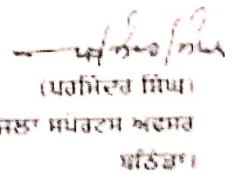 (ਪਰਮਿੰਦਰ ਸਿੰਘ)
ਜਿਲਾ ਸਪੋਰਟਸ ਅਫਸਰ
ਬਠਿੰਡਾ।